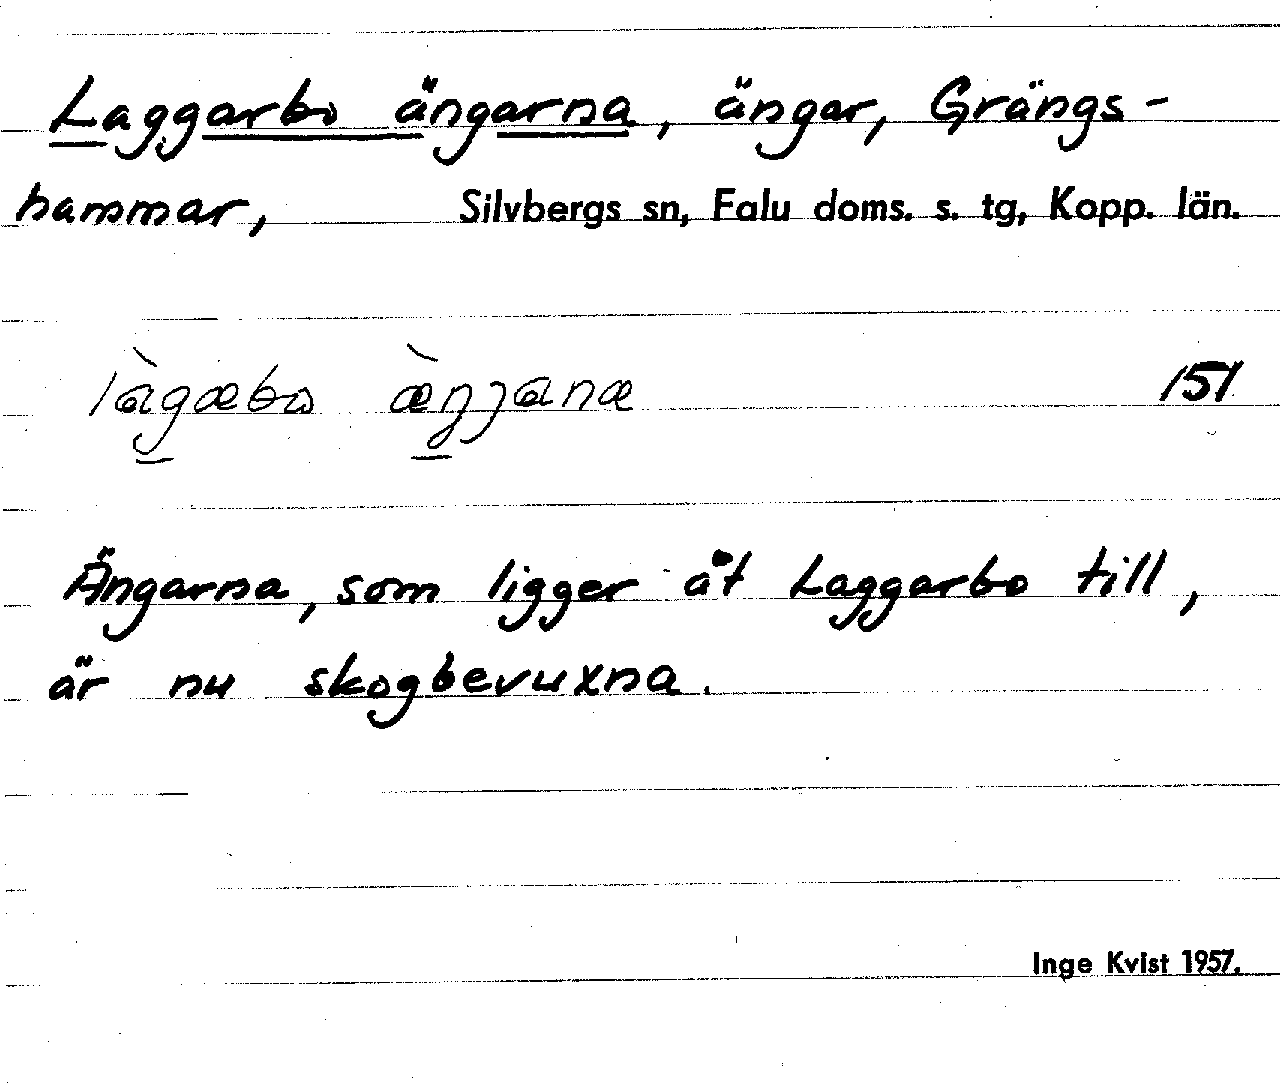 Laggarbo ängarna, ängar, Grängs-
hammar, Silvbergs sn, Falu doms. s. tg, Kopp. län.
làgæbo æ̀ŋjanæ 151
Ängarna, som ligger åt Laggarbo till,
är nu skogbevuxna.
Inge Kvist 1957.